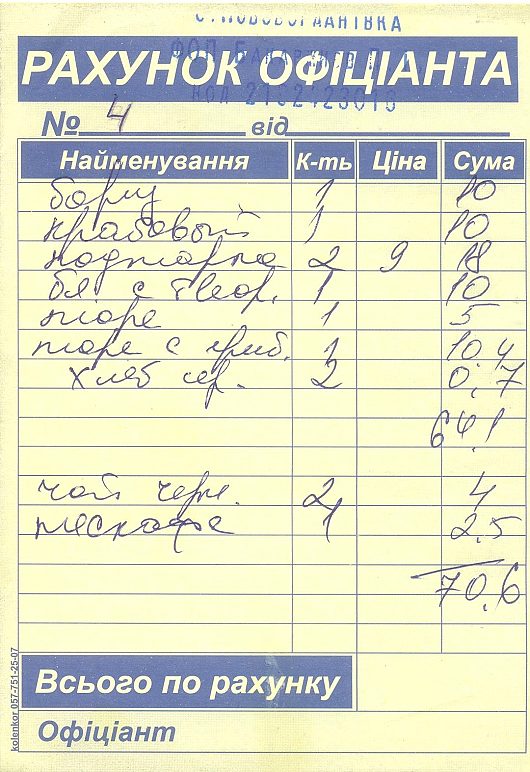 С. НОВОБОГДАНІВКА
РАХУНОК ОФІЦІАНТА
№ 4 від
Найменування К-ть Ціна Сума
борщ 1 10
крабовый 1 10
поджарка 2 9 18
бл с твор. 1 10
пюре 1 5
пюре с гриб. 1 10,4
хлеб сер. 2 0,7
64,1
чай черн. 2 4
нескафе 1 2,5
70,6
Всього по рахунку
Офіціант
kolenkor 057-751-25-07